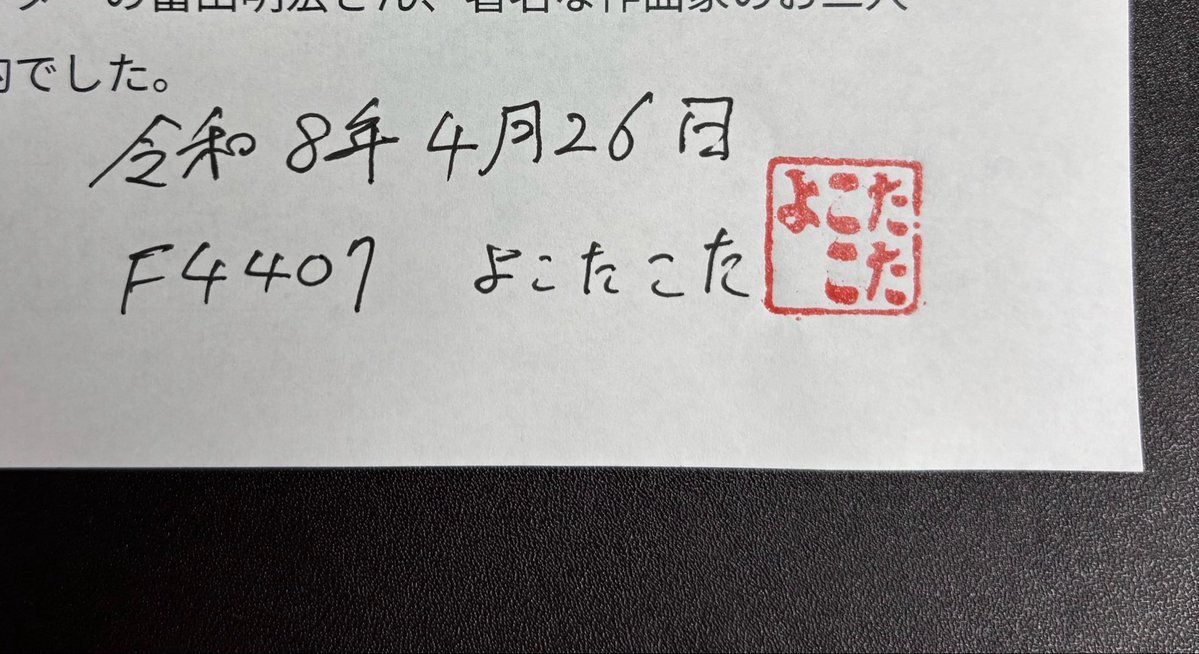 の富田明宏さん、著名な作曲家のお二人
でした。
令和8年4月26日
F4407 よこたこた
よこた
こた